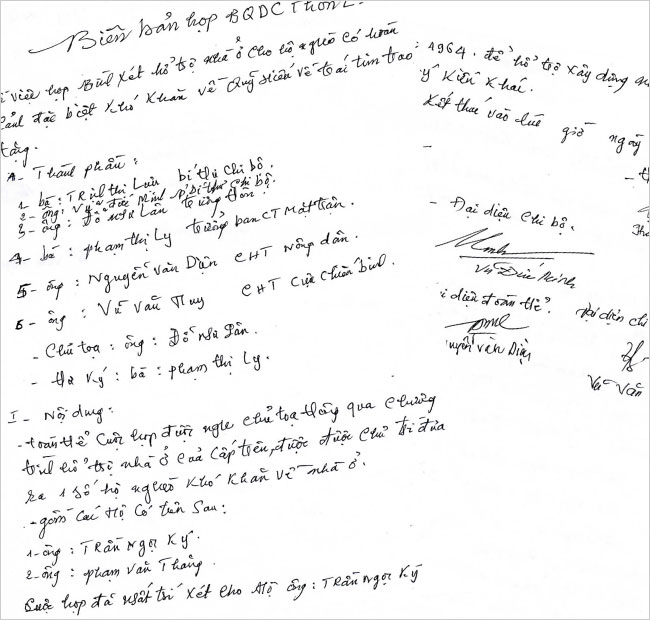 Biên bản họp BQDC Thôn
về việc họp Bình xét hỗ trợ nhà ở cho hộ nghèo có hoàn
cảnh đặc biệt khó khăn về Quỹ hiến về tái tim trao
tặng.
A - Thành phần:
1 bà: Trịnh thị Lưu bí thư chi bộ.
2 - ông: Vũ Đức Minh P Bí thư chi bộ.
3 - ông: Đỗ như Lân trưởng thôn.
4 - bà: phạm thị Ly trưởng ban CT Mặt trận.
5 - ông: Nguyễn Văn Diện CHT Nông dân.
6 - ông: Vũ Văn Huy CHT Cựu chiến binh.
- Chủ toạ: ông: Đỗ như Lân.
- thư ký: bà: phạm thị Ly.
I - Nội dung:
- toàn thể cuộc họp được nghe chủ toạ thông qua chương
trình hỗ trợ nhà ở của cấp trên, được được chủ trì đưa
ra 1 số hộ nghèo khó khăn về nhà ở.
- gồm các hộ có tên sau:
1 - ông: Trần Ngọc Ký.
2 - ông: phạm văn Thắng.
Cuộc họp đã nhất trí xét cho hộ ông: Trần Ngọc Ký
1964. để hỗ trợ xây dựng
ý kiến khác.
Kết thúc vào lúc giờ ngày
- Đại diện chi bộ.
Vũ Đức Minh
i diện đoàn thể. Đại diện chi
uyễn văn Diện
Vũ Văn